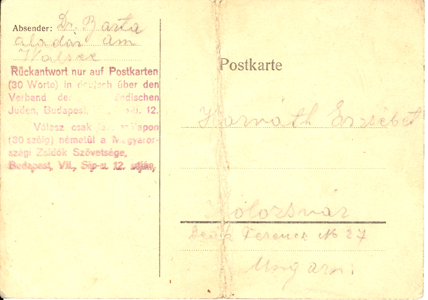 Absender: Dr. Barta
Aladár am
Walsee
Rückantwort nur auf Postkarten
(30 Worte) in deutsch über den
Verband der ... ischen
Juden, Budapest, ... 12.
Válasz csak ... apon
(30 szóig) németül a Magyaror-
szági Zsidók Szövetsége,
Budapest, VII., Síp-u. 12. útján.
Postkarte
Horváth Erzsébet
Kolozsvár
Deák Ferenc № 27
Ungarn